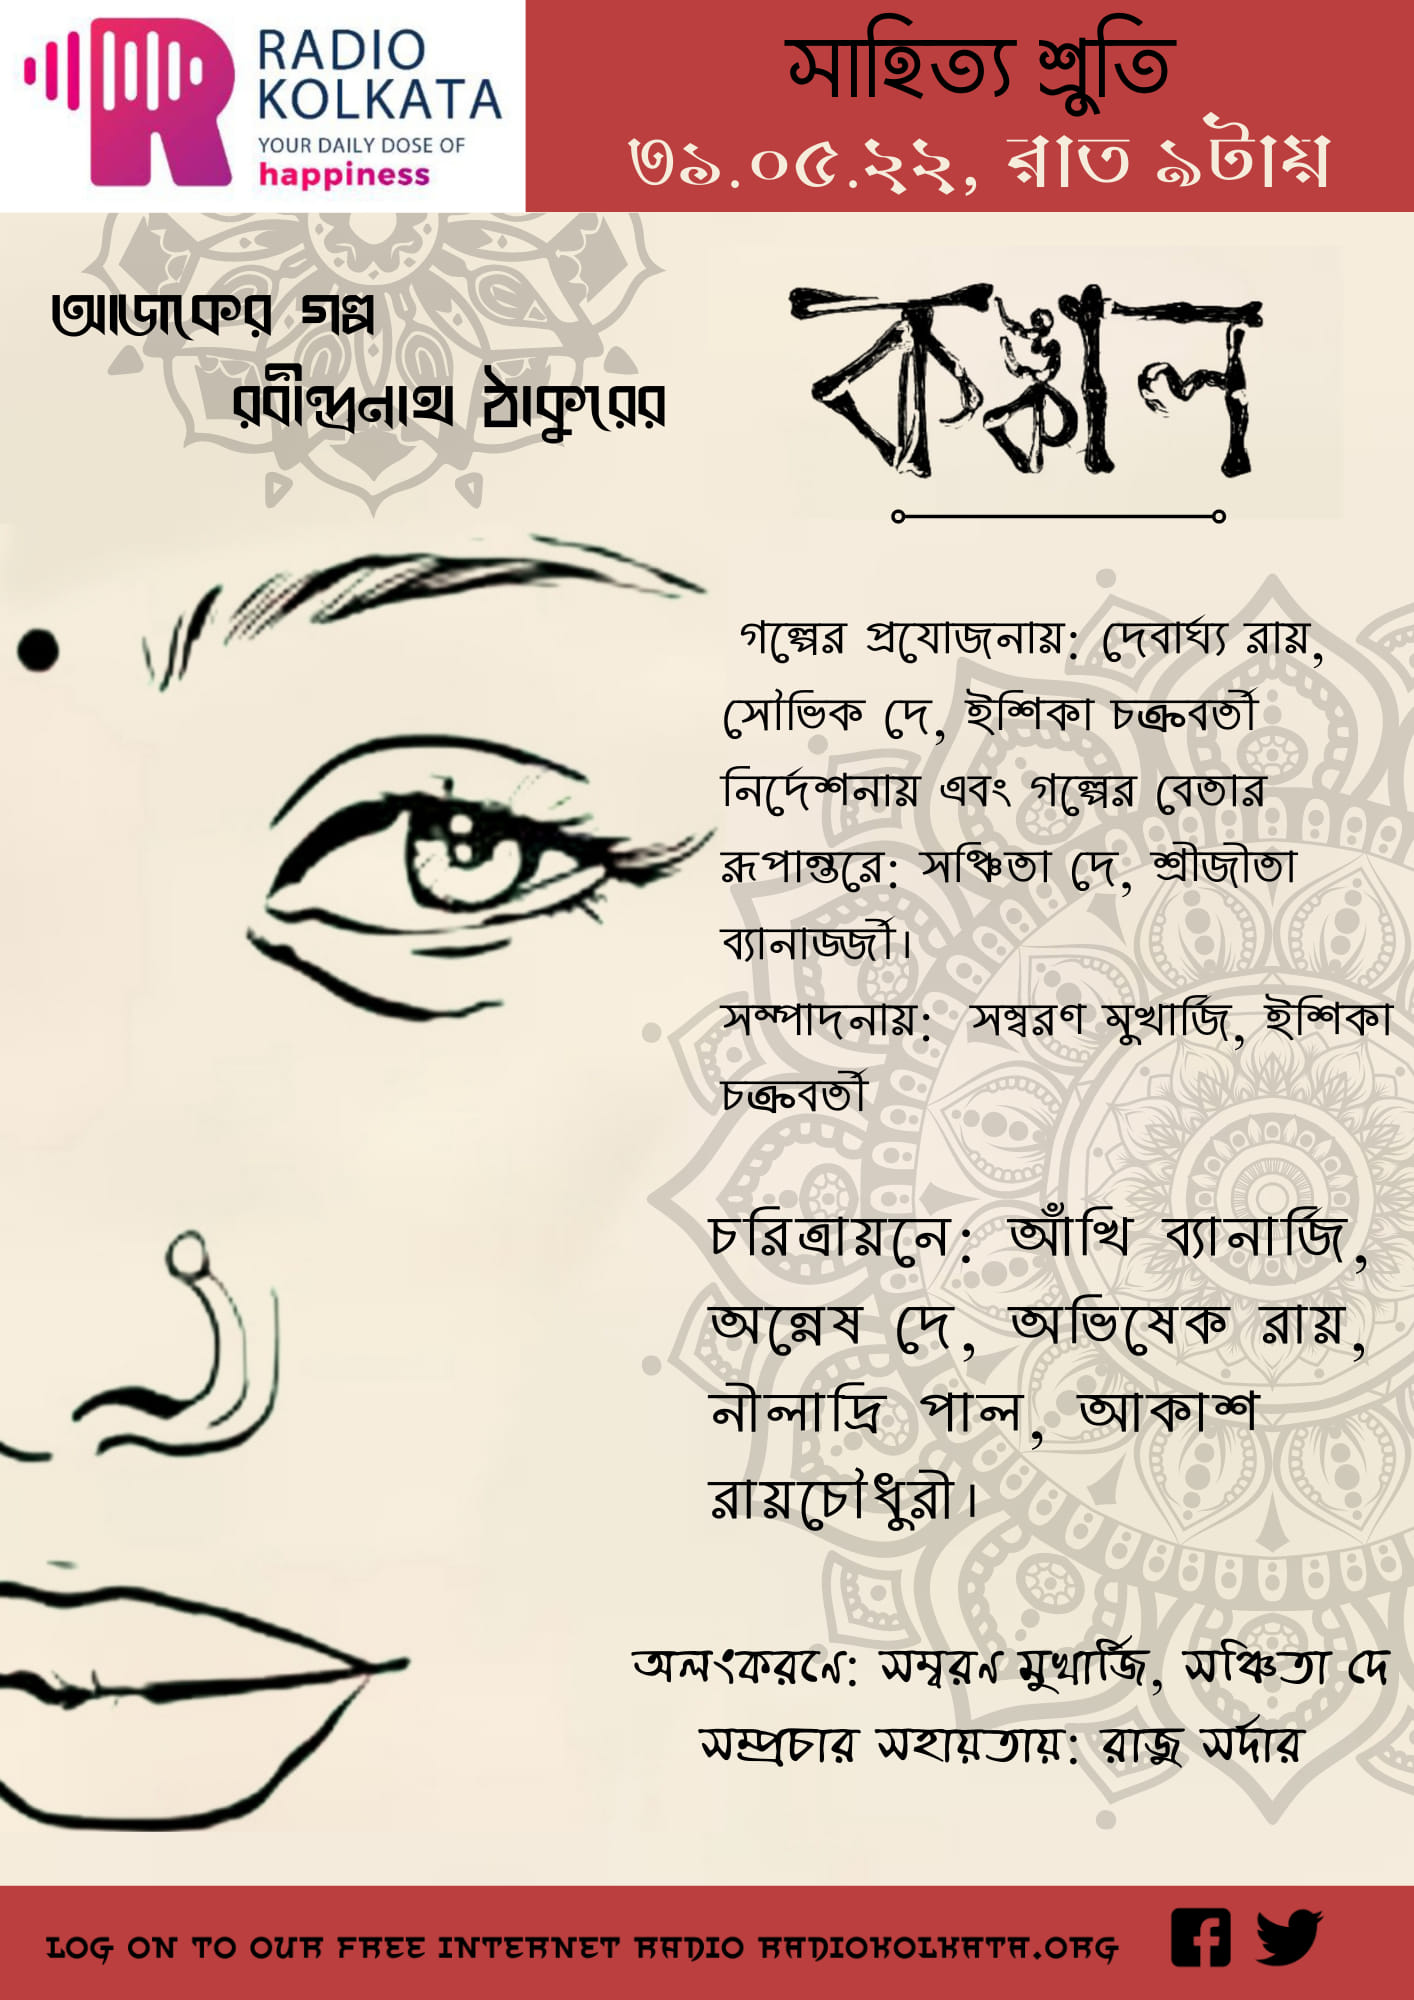 RADIO
KOLKATA
YOUR DAILY DOSE OF
happiness
সাহিত্য শ্রুতি
৩১.০৫.২২, রাত ৯টায়
আজকের গল্প
রবীন্দ্রনাথ ঠাকুরের
কঙ্কাল
গল্পের প্রযোজনায়: দেবার্ঘ্য রায়,
সৌভিক দে, ইশিকা চক্রবর্তী
নির্দেশনায় এবং গল্পের বেতার
রূপান্তরে: সঞ্চিতা দে, শ্রীজীতা
ব্যানার্জ্জী।
সম্পাদনায়: সম্বরণ মুখার্জি, ইশিকা
চক্রবর্তী
চরিত্রায়নে: আঁখি ব্যানার্জি,
অন্নেষ দে, অভিষেক রায়,
নীলাদ্রি পাল, আকাশ
রায়চৌধুরী।
অলংকরণে: সম্বরণ মুখার্জি, সঞ্চিতা দে
সম্প্রচার সহায়তায়: রাজু সর্দার
LOG ON TO OUR FREE INTERNET RADIO RADIOKOLKATA.ORG